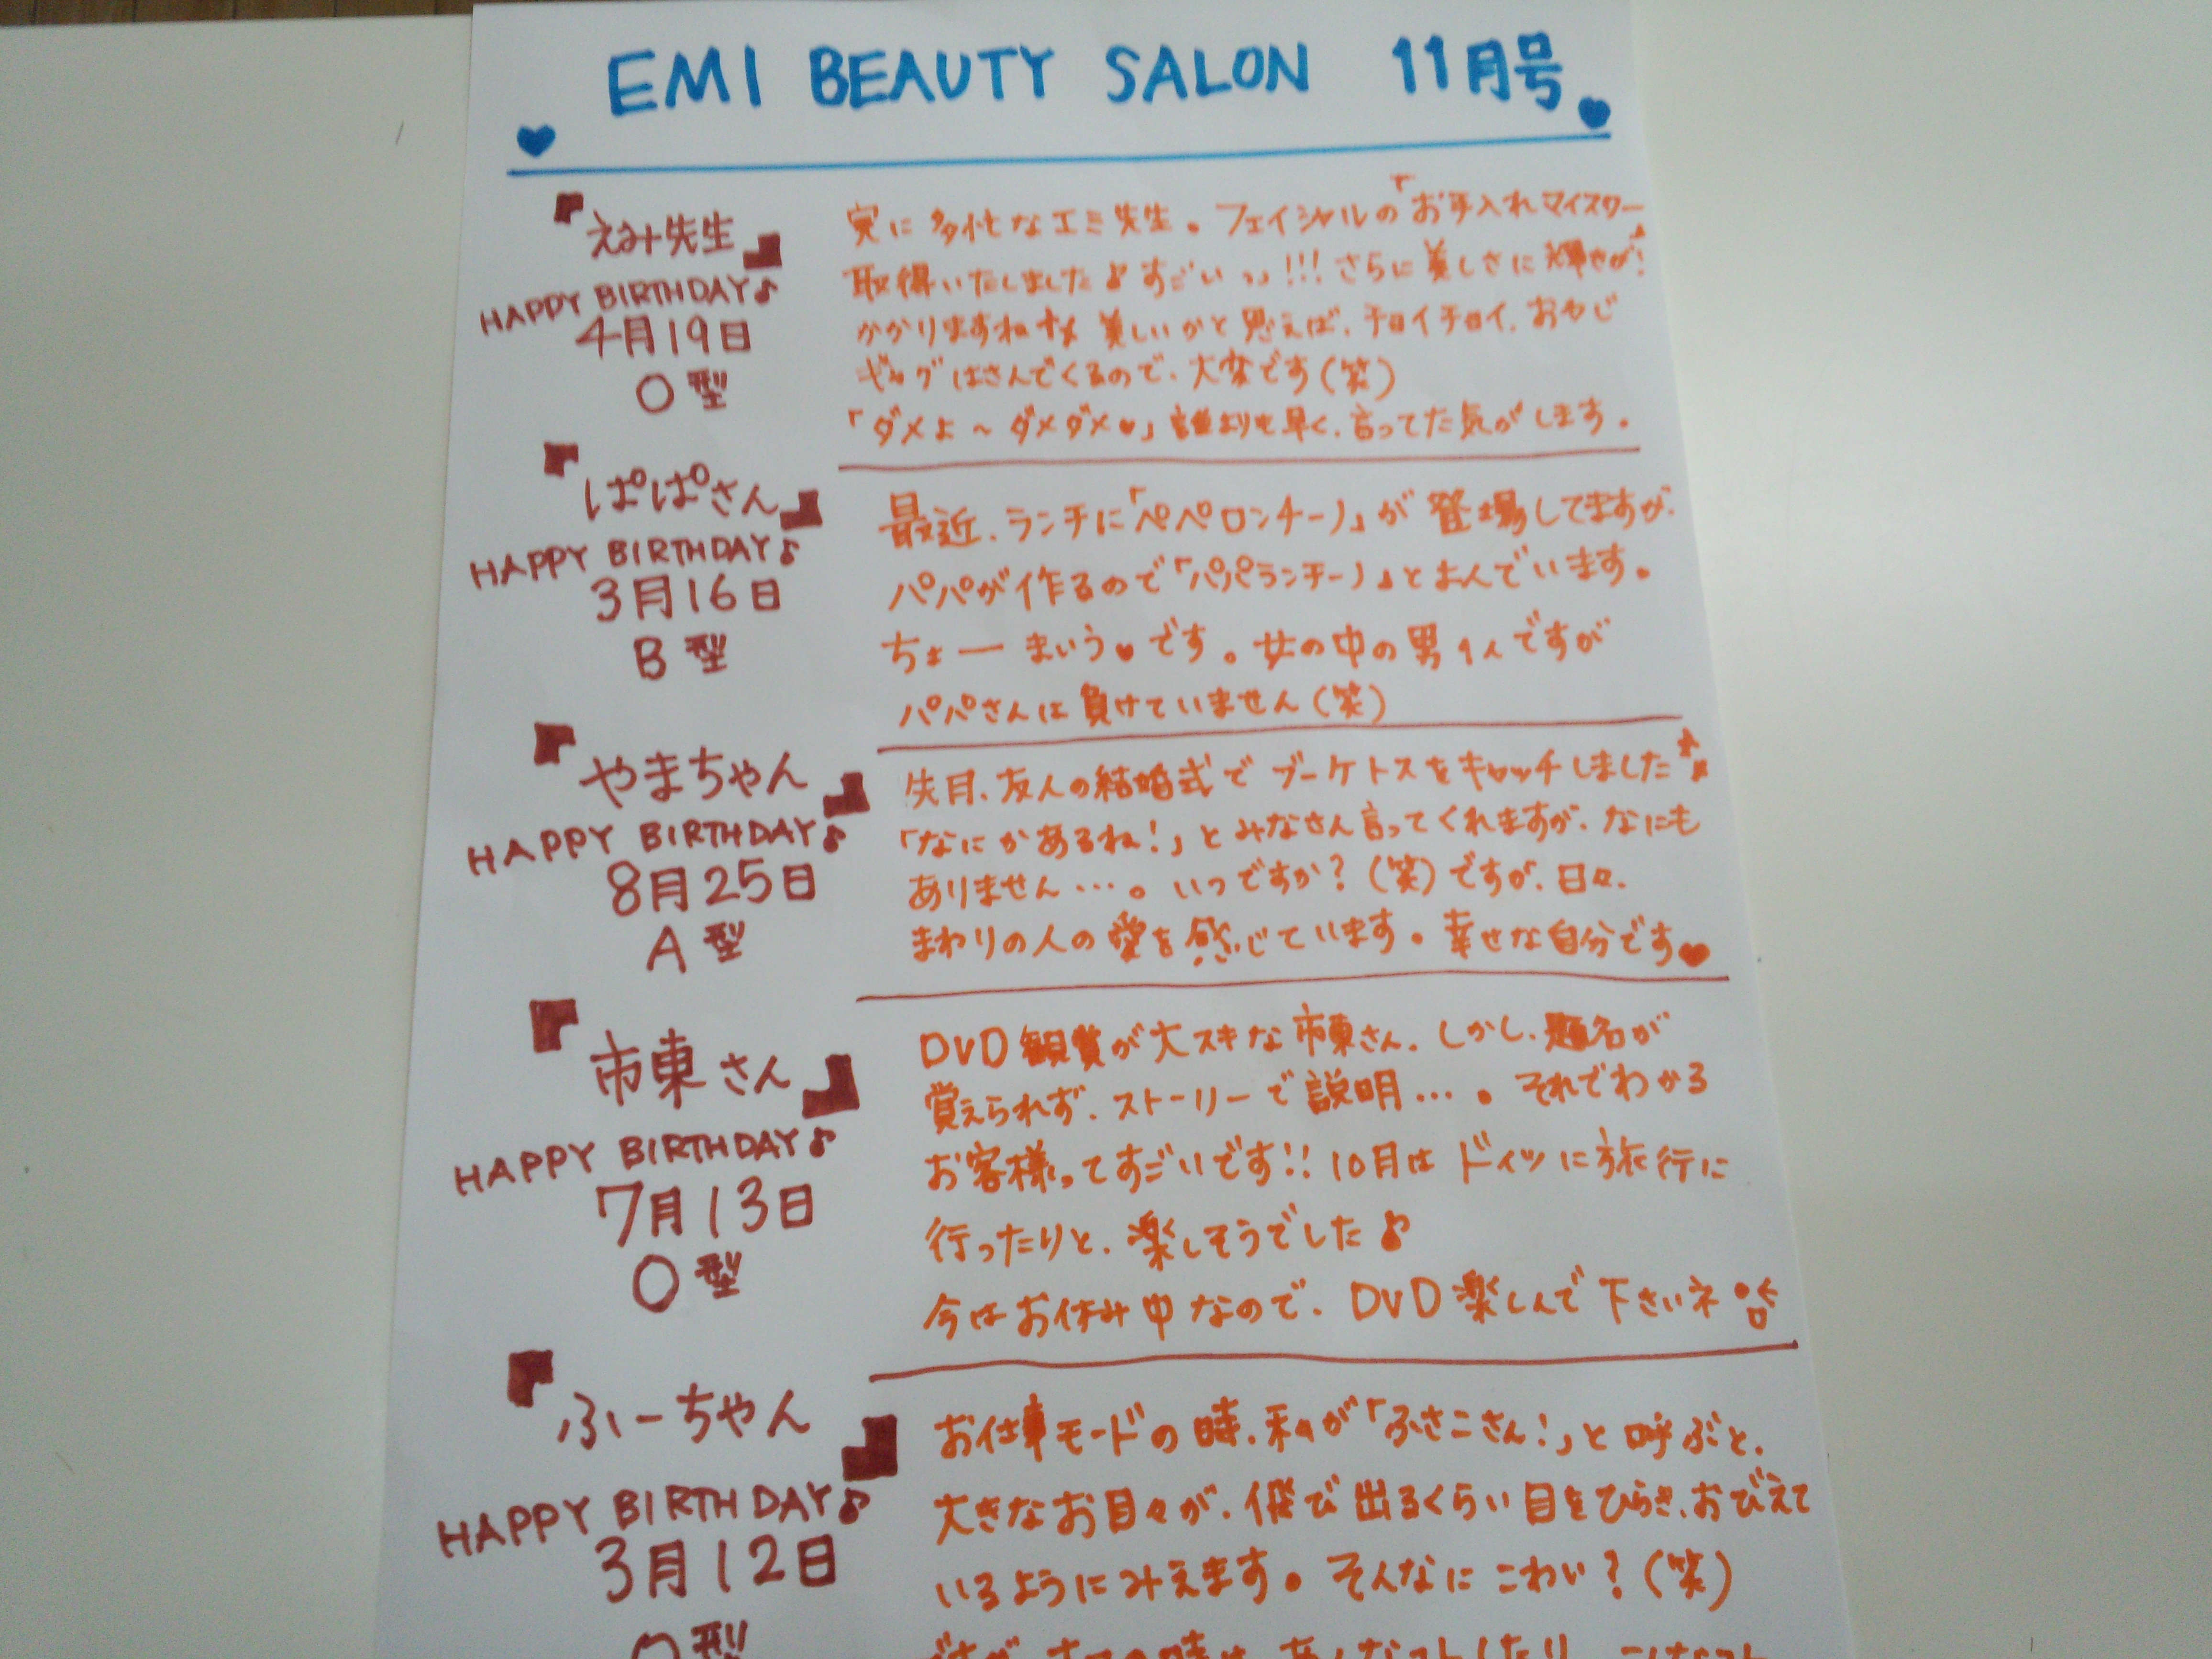 EMI BEAUTY SALON 11月号
『えみ先生』
HAPPY BIRTHDAY♪
4月19日
O型
実に多忙なエミ先生。フェイシャルの「お手入れマイスター」
取得いたしました♪すごいっっ!!!さらに美しさに輝きが!
かかりますね 美しいかと思えば、チョイチョイ、おやじ
ギャグはさんでくるので、大変です(笑)
「ダメよ〜ダメダメ♥」誰よりも早く、言ってた気がします。
『ぱぱさん』
HAPPY BIRTHDAY♪
3月16日
B型
最近、ランチに「ペペロンチーノ」が登場してますが、
パパが作るので「パパランチーノ」とよんでいます。
ちょーまいう♥です。女の中の男1人ですが
パパさんは負けていません(笑)
『やまちゃん』
HAPPY BIRTHDAY♪
8月25日
A型
先月、友人の結婚式でブーケトスをキャッチしました
「なにかあるね!」とみなさん言ってくれますが、なにも
ありません…。いつですか?(笑)ですが、日々、
まわりの人の愛を感じています。幸せな自分です♥
『市東さん』
HAPPY BIRTHDAY♪
7月13日
O型
DVD観賞が大スキな市東さん。しかし、題名が
覚えられず、ストーリーで説明…。それでわかる
お客様ってすごいです!!10月はドイツに旅行に
行ったりと、楽しそうでした♪
今はお休み中なので、DVD楽しんで下さいネ
『ふーちゃん』
HAPPY BIRTHDAY♪
3月12日
型
お仕事モードの時、私が「ふさこさん!」と呼ぶと、
大きなお目々が、飛び出るくらい目をひらき、おびえて
いるようにみえます。そんなにこわい?(笑)